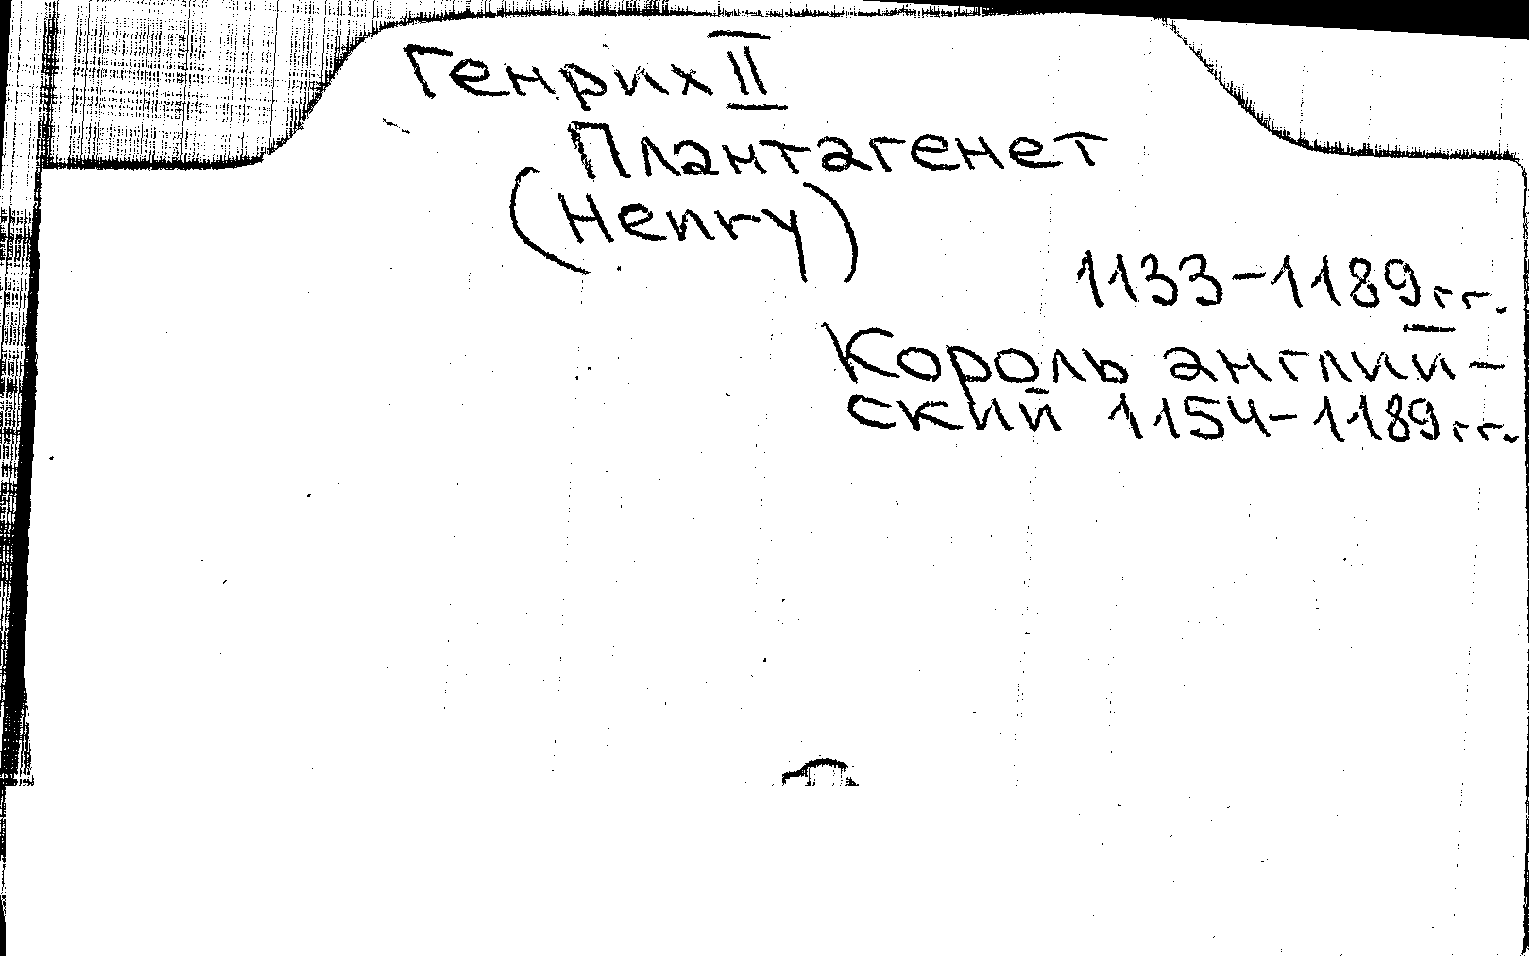 Генрих II
Плантагенет
(Henry)
1133-1189гг.
Король англий-
ский 1154-1189гг.